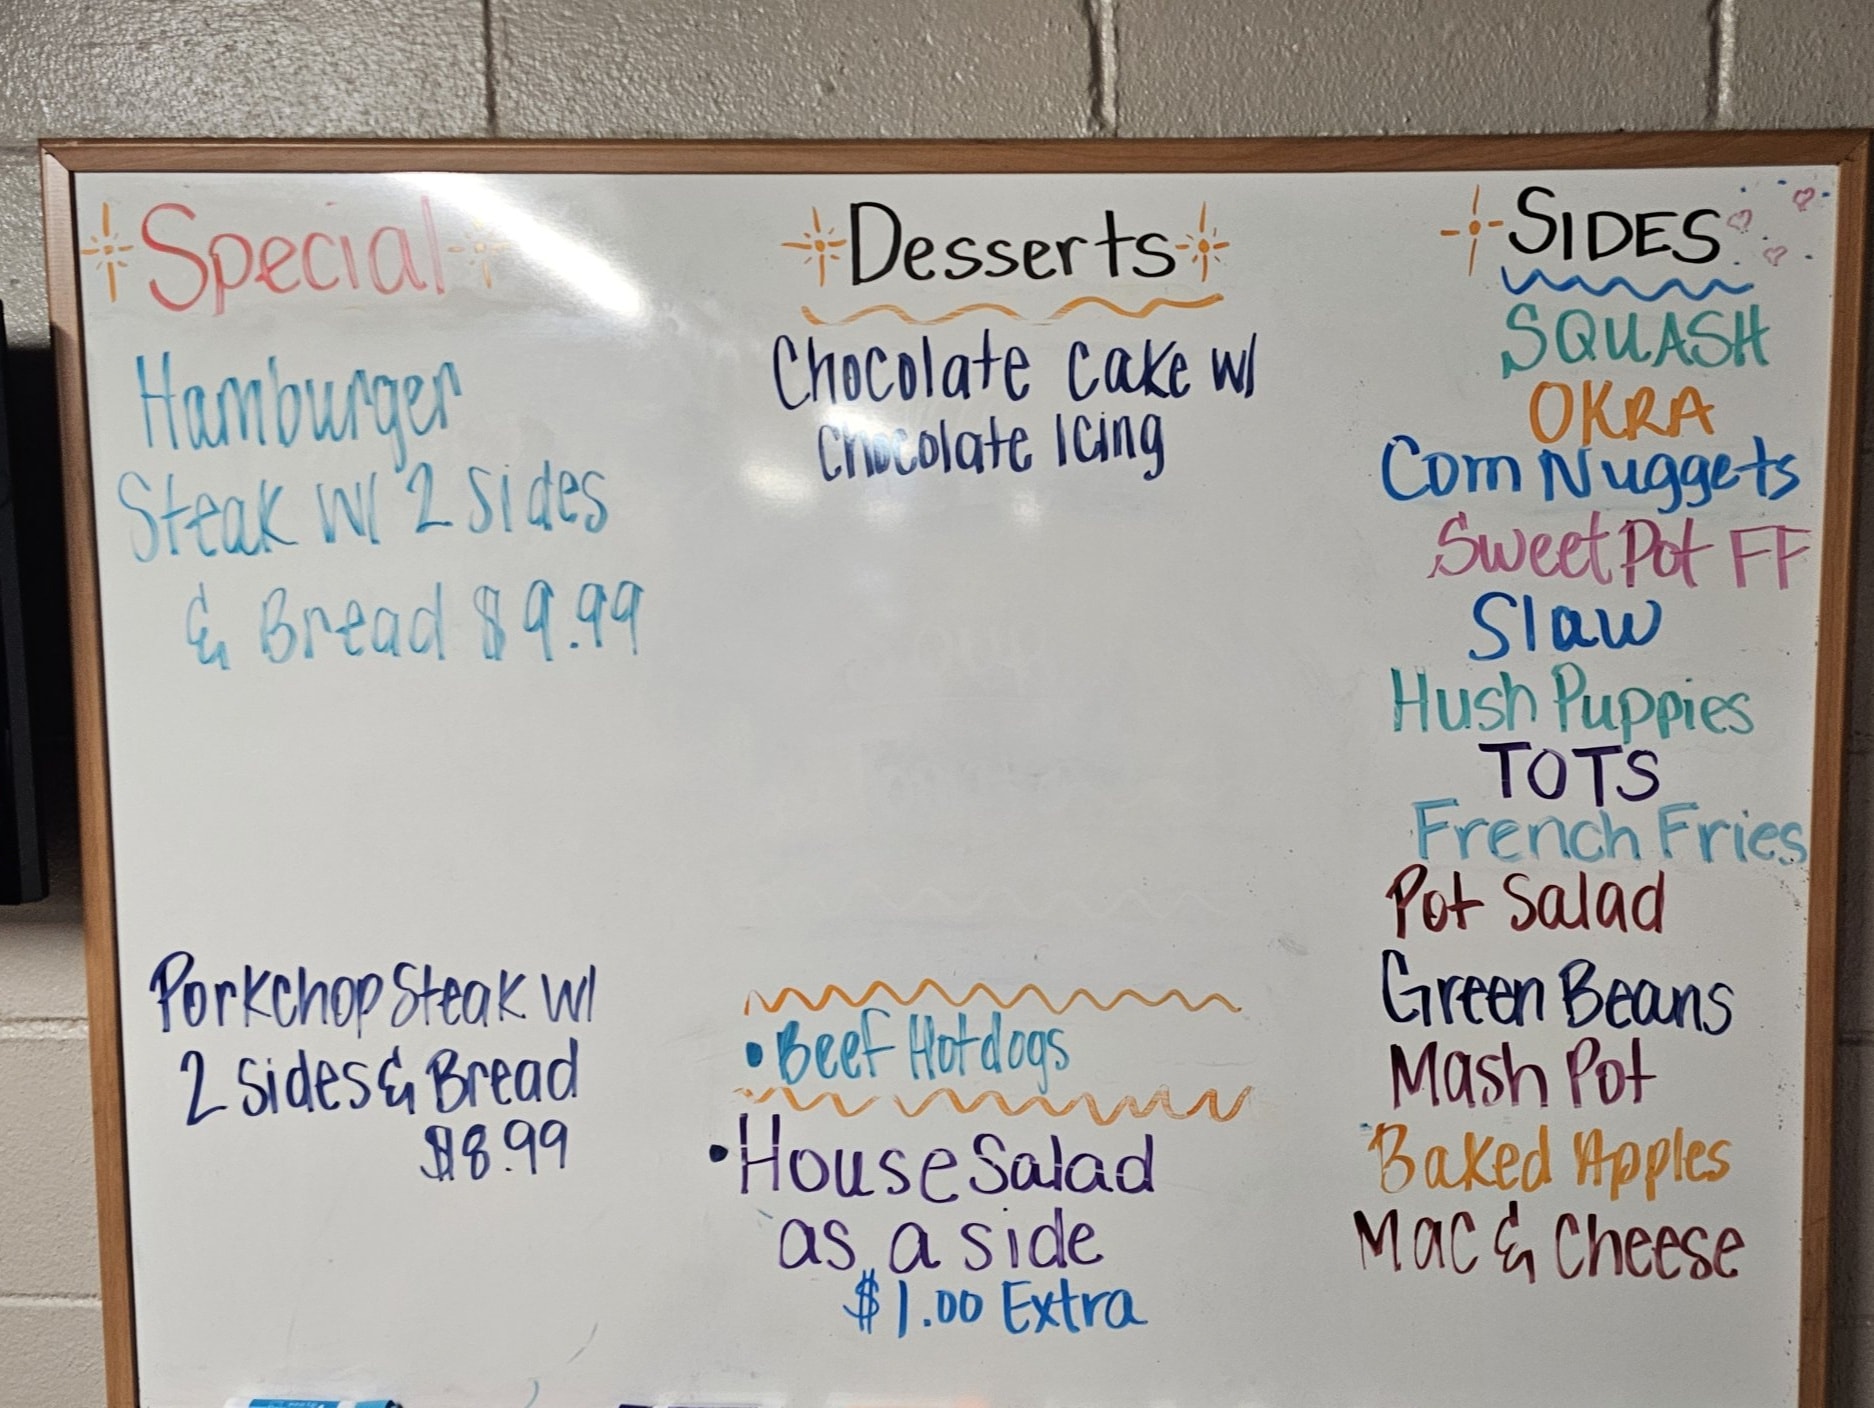 Special
Hamburger
Steak w/ 2 sides
& Bread $9.99
Porkchop Steak w/
2 sides & Bread
$8.99
Desserts
Chocolate cake w/
chocolate Icing
• Beef Hotdogs
• House Salad
as a side
$1.00 Extra
SIDES
SQUASH
OKRA
Corn Nuggets
Sweet Pot FF
Slaw
Hush Puppies
TOTS
French Fries
Pot Salad
Green Beans
Mash Pot
Baked Apples
Mac & Cheese